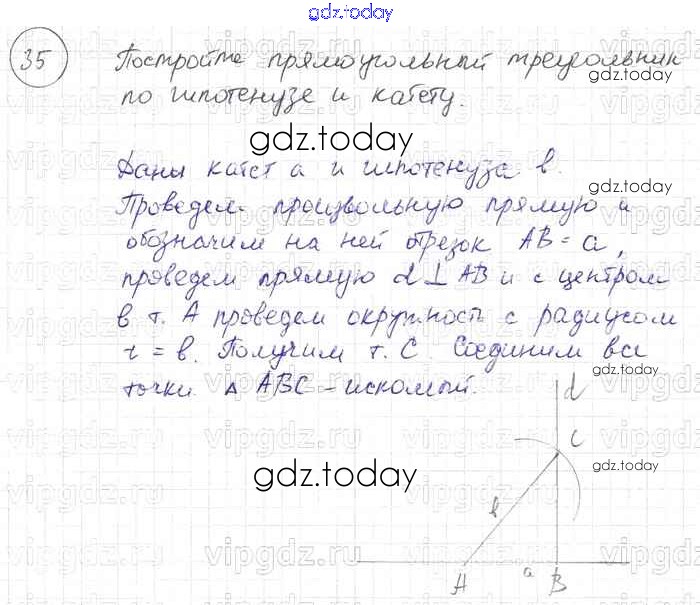 gdz.today
35 Постройте прямоугольный треугольник
gdz.today
по гипотенузе и катету.
gdz.today
Даны катет a и гипотенуза b.
gdz.today
Проведем произвольную прямую и
обозначим на ней отрезок AB = a,
проведем прямую d ⊥ AB и с центром
в т. A проведем окружность с радиусом
r = b. Получим т. C. Соединим все
gdz.today
точки. △ ABC – искомый.
d
C
gdz.today
gdz.today
b
a
A B
vipgdz.ru